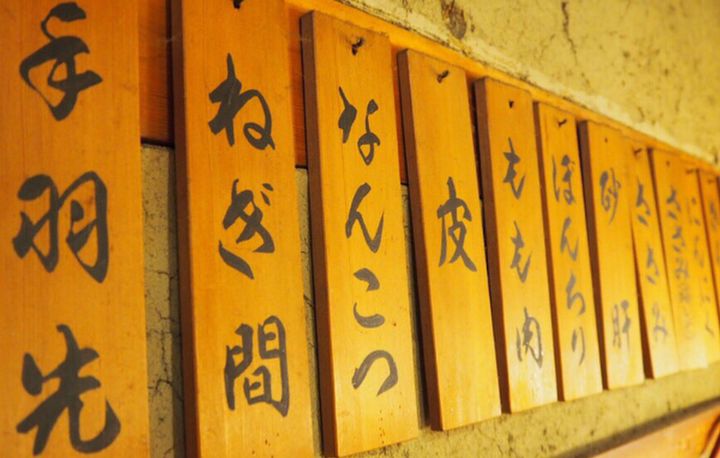 手羽先
ねぎ間
なんこつ
皮
もも肉
ぼんちり
砂肝
ささみ